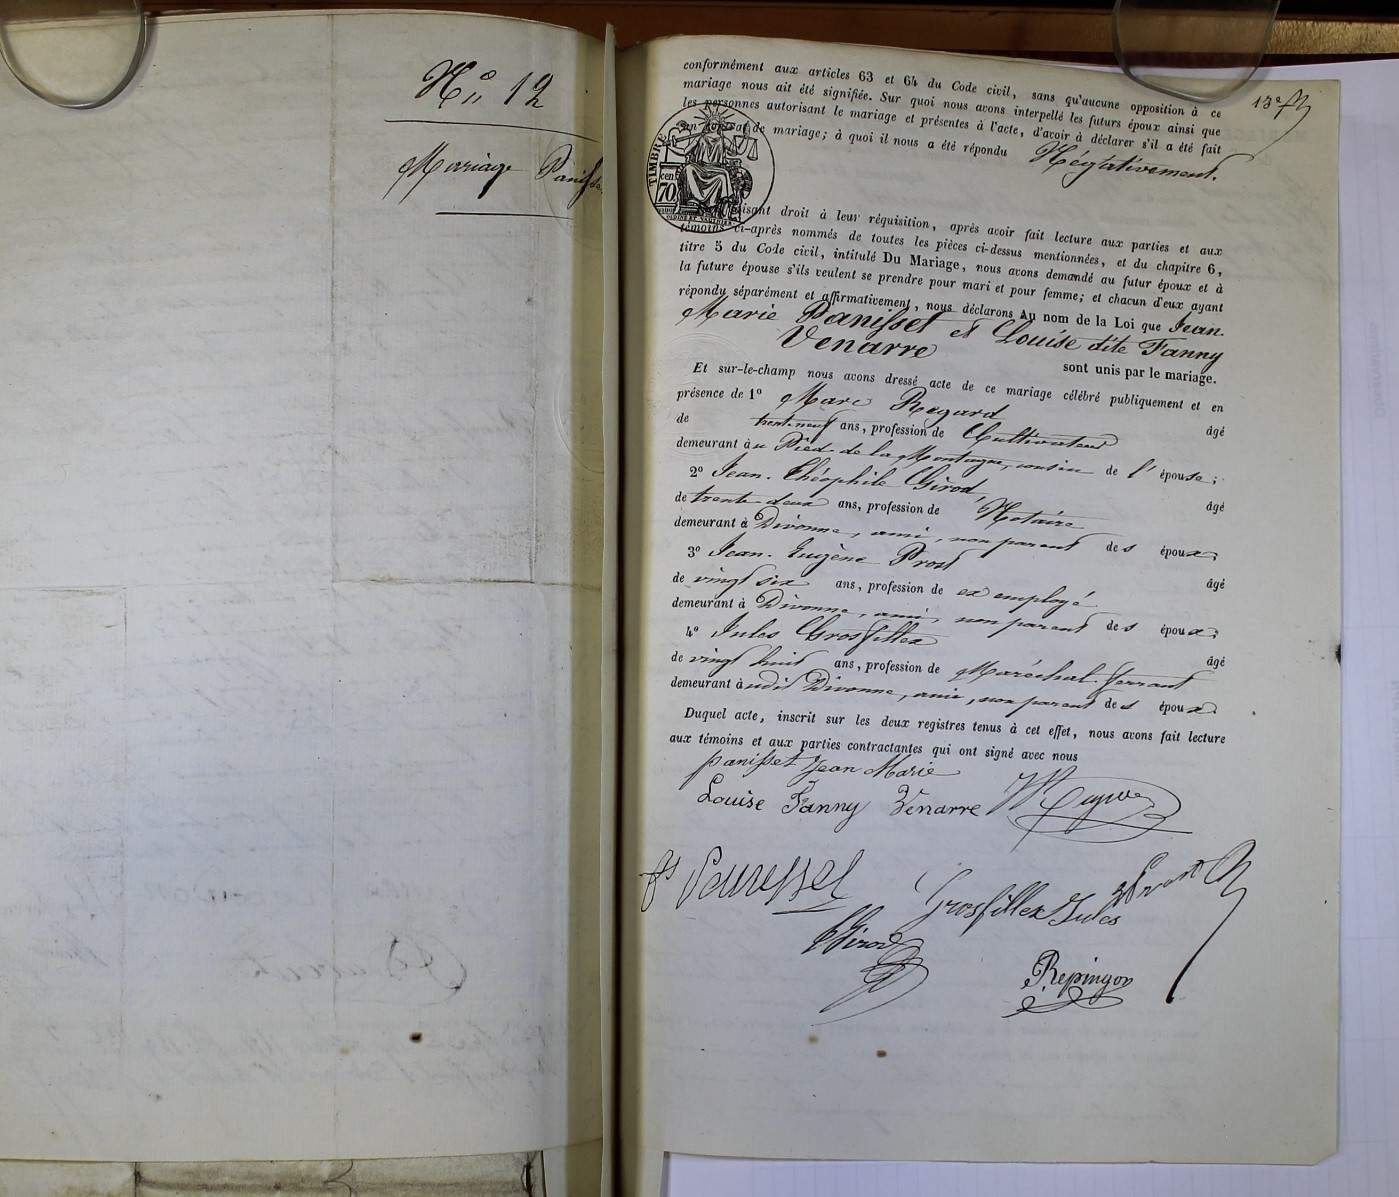 N° 12
Mariage Panisse
13e
conformément aux articles 63 et 64 du Code civil, sans qu'aucune opposition à ce
mariage nous ait été signifiée. Sur quoi nous avons interpellé les futurs époux ainsi que
les personnes autorisant le mariage et présentes à l'acte, d'avoir à déclarer s'il a été fait
de mariage; à quoi il nous a été répondu Négativement.
TIMBRE
70
cen
Faisant droit à leur réquisition, après avoir fait lecture aux parties et aux
témoins ci-après nommés de toutes les pièces ci-dessus mentionnées, et du chapitre 6,
titre 5 du Code civil, intitulé Du Mariage, nous avons demandé au futur époux et à
la future épouse s'ils veulent se prendre pour mari et pour femme; et chacun d'eux ayant
répondu séparément et affirmativement, nous déclarons Au nom de la Loi que Jean-
Marie Panisset et Louise dite Fanny
Venarre
sont unis par le mariage.
Et sur-le-champ nous avons dressé acte de ce mariage célébré publiquement et en
présence de 1° Marc Regard âgé
de trente neuf ans, profession de Cultivateur
demeurant au Pied de la Montagne, cousin de l'épouse;
2° Jean-Théophile Girod, âgé
de trente deux ans, profession de Notaire
demeurant à Divonne, ami, non parent des époux;
3° Jean-Eugène Prost âgé
de vingt six ans, profession de ex employé
demeurant à Divonne, ami, non parent des époux;
4° Jules Grosfillex âgé
de vingt huit ans, profession de Maréchal-ferrant
demeurant audit Divonne, ami, non parent des époux.
Duquel acte, inscrit sur les deux registres tenus à cet effet, nous avons fait lecture
aux témoins et aux parties contractantes qui ont signé avec nous
panisset Jean Marie
Louise Fanny Venarre
Grosfillex Jules
Girod
Repingon